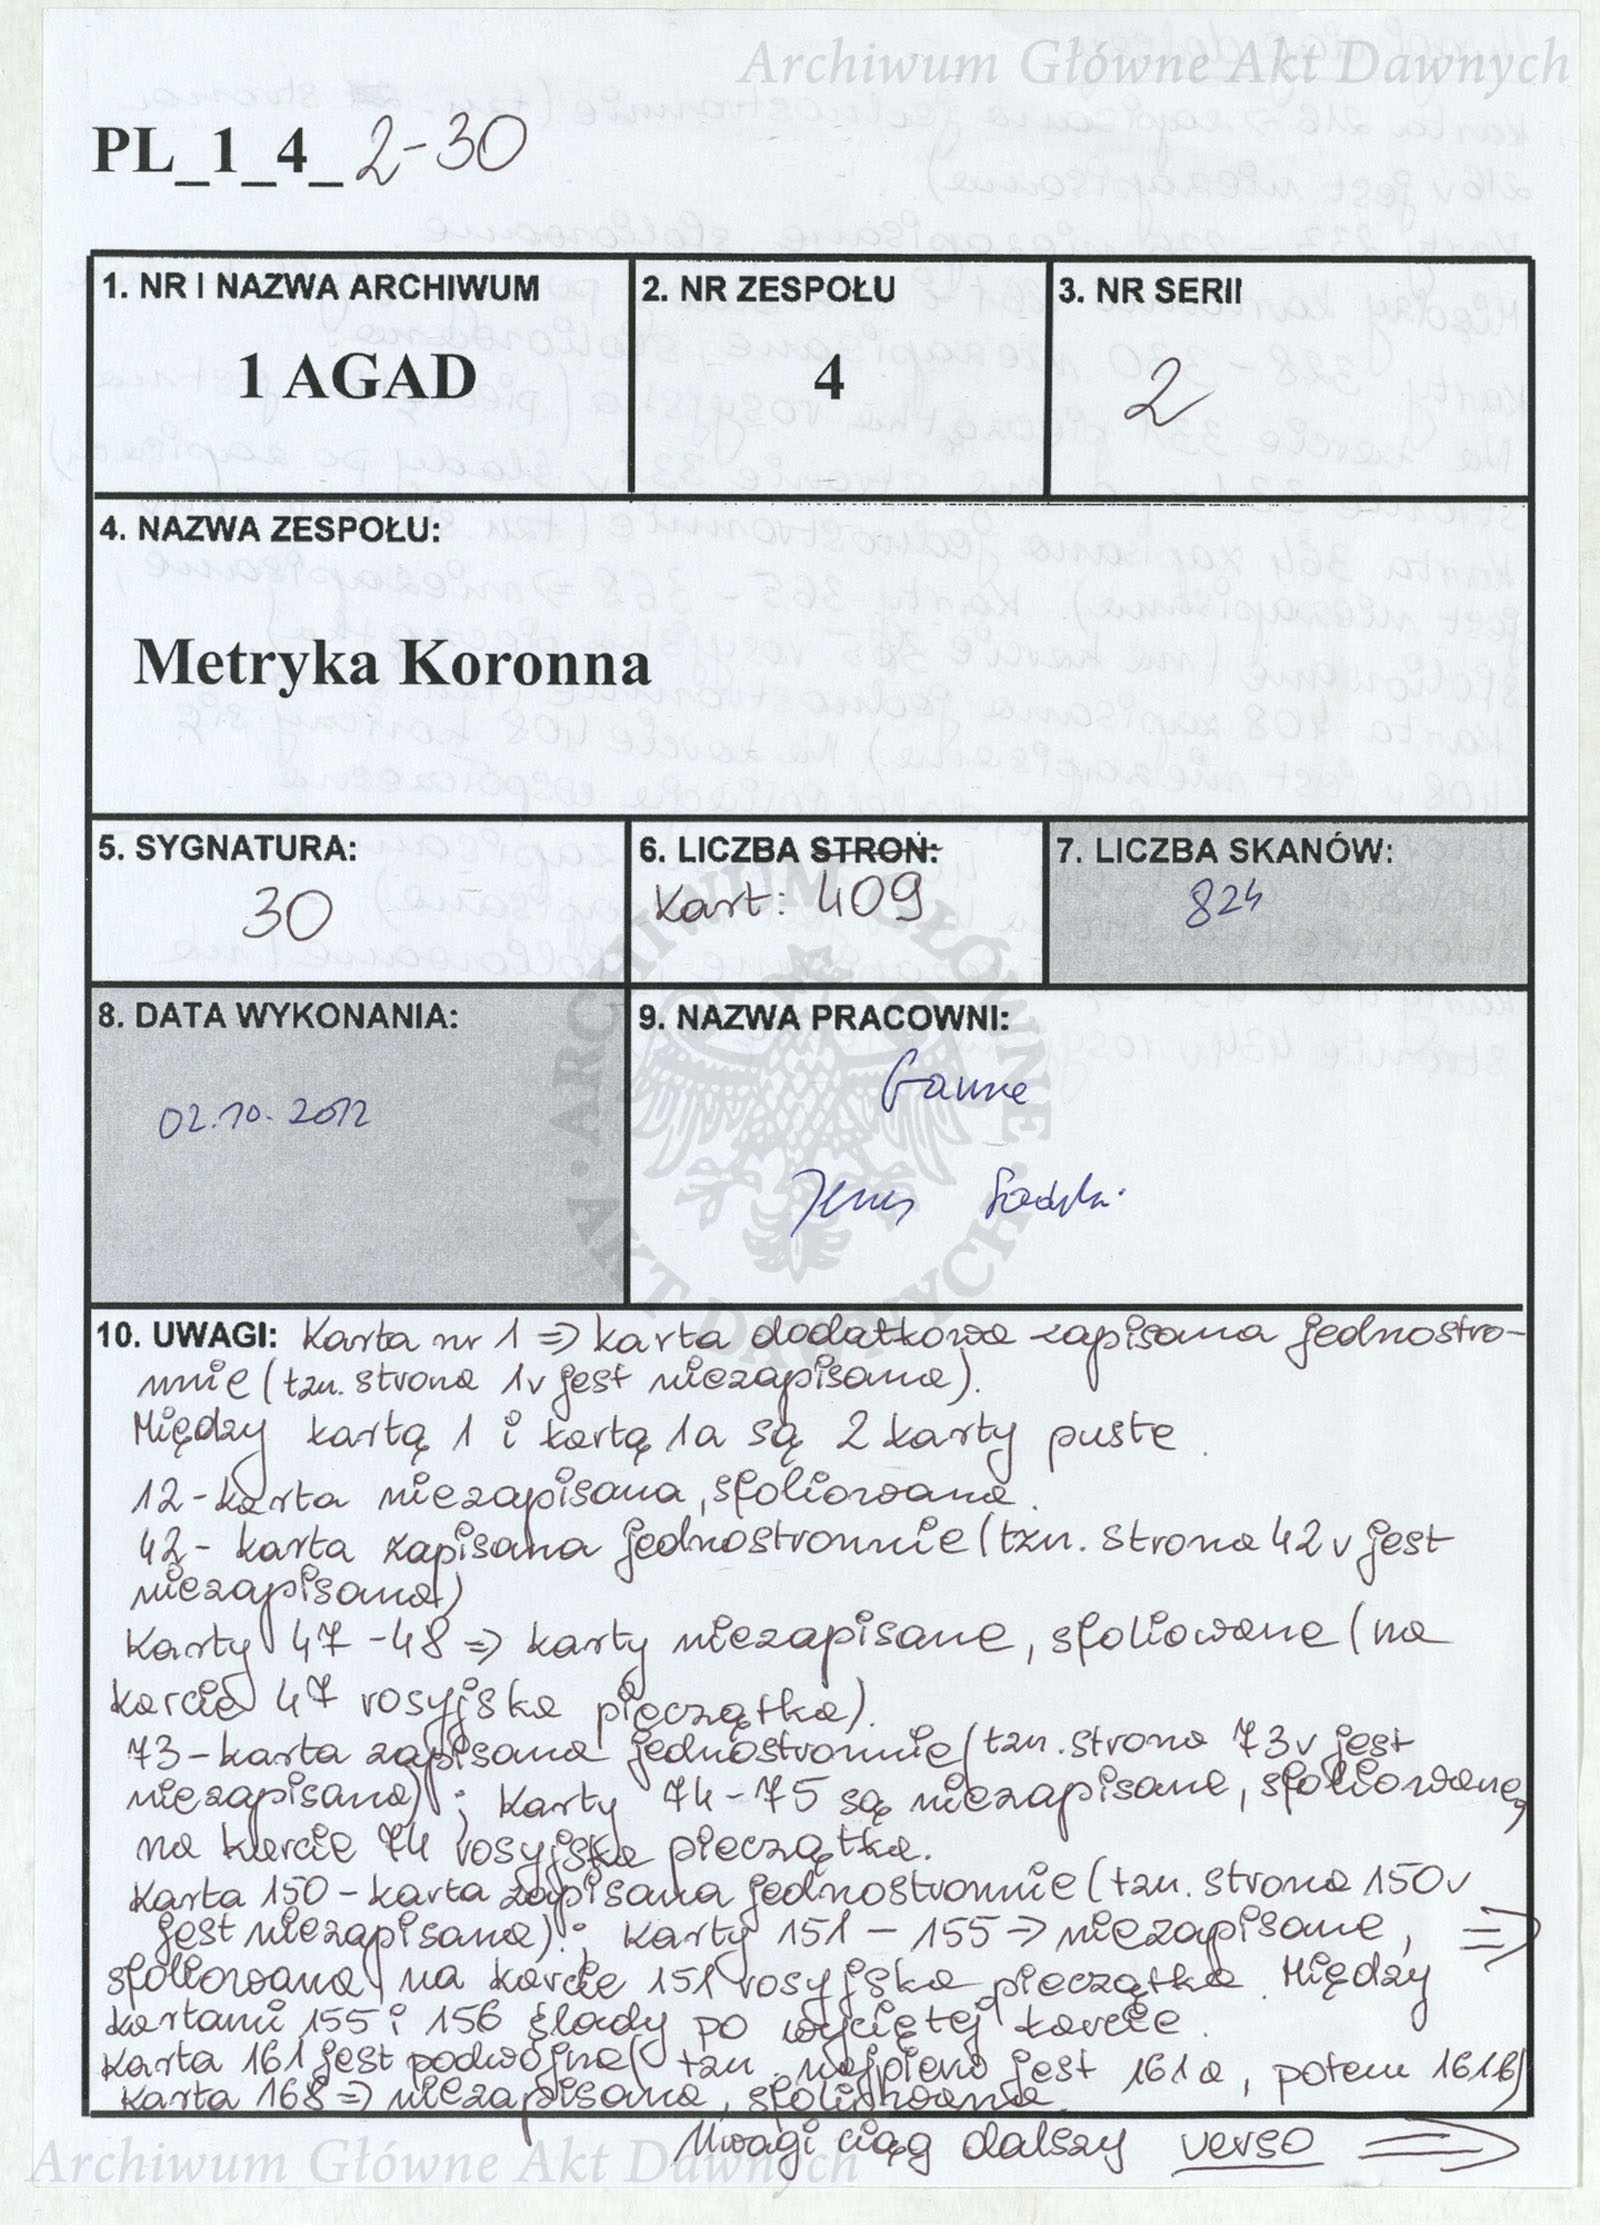 Archiwum Główne Akt Dawnych
PL_1_4_2-30
1. NR I NAZWA ARCHIWUM
1 AGAD
2. NR ZESPOŁU
4
3. NR SERII
2
4. NAZWA ZESPOŁU:
Metryka Koronna
5. SYGNATURA:
30
6. LICZBA STRON:
Kart: 409
7. LICZBA SKANÓW:
824
8. DATA WYKONANIA:
02.10.2012
9. NAZWA PRACOWNI:
ARCHIWUM GŁÓWNE · AKT DAWNYCH ·
10. UWAGI: Karta nr 1 => karta dodatkowa zapisana jednostro-
nnie (tzn. strona 1v jest niezapisana).
Między kartą 1 i kartą 1a są 2 karty puste.
12 - karta niezapisana, sfoliowana.
42 - karta zapisana jednostronnie (tzn. strona 42v jest
niezapisana)
Karty 47 - 48 => karty niezapisane, sfoliowane (na
karcie 47 rosyjska pieczątka).
73 - karta zapisana jednostronnie (tzn. strona 73v jest
niezapisana); Karty 74 - 75 są niezapisane, sfoliowane,
na karcie 74 rosyjska pieczątka.
Karta 150 - karta zapisana jednostronnie (tzn. strona 150v
jest niezapisana).; Karty 151 - 155 => niezapisane, =>
sfoliowane, na karcie 151 rosyjska pieczątka. Między
kartami 155 i 156 ślady po wyciętej karcie.
Karta 161 jest podwójna (tzn. najpierw jest 161a, potem 161b)
Karta 168 => niezapisana, sfoliowana.
Uwagi ciąg dalszy verso =>
Archiwum Główne Akt Dawnych